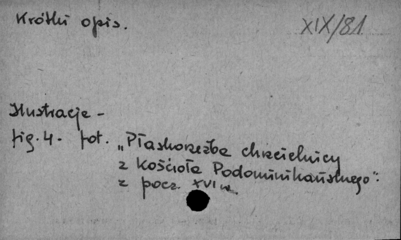 Krótki opis.
XIX/81
Ilustracje -
fig. 4. fot. „Płaskorzeźba chrzcielnicy
z kościoła Podominikańskiego":
z pocz. XVI w.